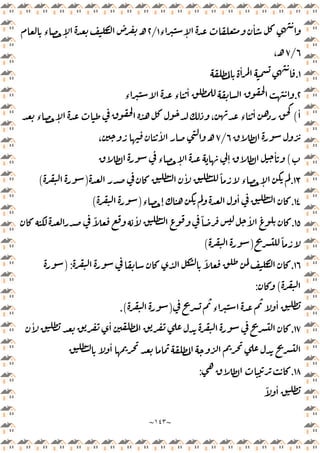 وانتهى كل شأن ومتعلقات عدة الاستبراء ١/‏٢هـ بفرض التكليف بعدة الإحصاء بالعام
٦/‏٧هـ،
١.فانتهى تسمية المرأة بالمطلقة
٢.وانتهت الحقوق السابقة للمطلق أثناء عدة الاستبراء
أ) حق ردهن أثناء عدتهن، وذلك لدخول كل هذه الحقوق في طيات عدة الإحصاء بعد
نزول سورة الطلاق ٦/‏٧هـ والتي صار الاثنان فيها زوجين،
ب) وتأجيل الطلاق إلي نهاية عدة الإحصاء في سورة الطلاق
١٣.لم يكن الإحصاء لازما للتطليق لأن التطليق كان في صدر العدة(سورة البقرة)
١٤.كان التطليق في أول العدة ولم يكن هناك إحصاء(سورة البقرة)
١٥.كان بلوغ الأجل ليس فرضاً في وقوع التطليق لأنه وقع فعلاً في صدر العدة لكنه كان
لازماً للتسريح(سورة البقرة)
١٦.كان التكليف لمن طلق فعلاً بالشكل الذي كان سابقا في سورة البقرة: (سورة
البقرة) وكان:
تطليق أولا ثم عدة استبراء ثم تسريح في(سورة البقرة).
١٧.كان التسريح في سورة البقرة يدل علي تفريق المطلقين أي تفريق بعد تطليق لأن
التسريح يدل علي تحريم الزوجة المطلقة تماما بعد تحريمها أولا بالتطليق
١٨.كانت ترتيبات الطلاق هي:
تطليق أولاً
~١٤٣~